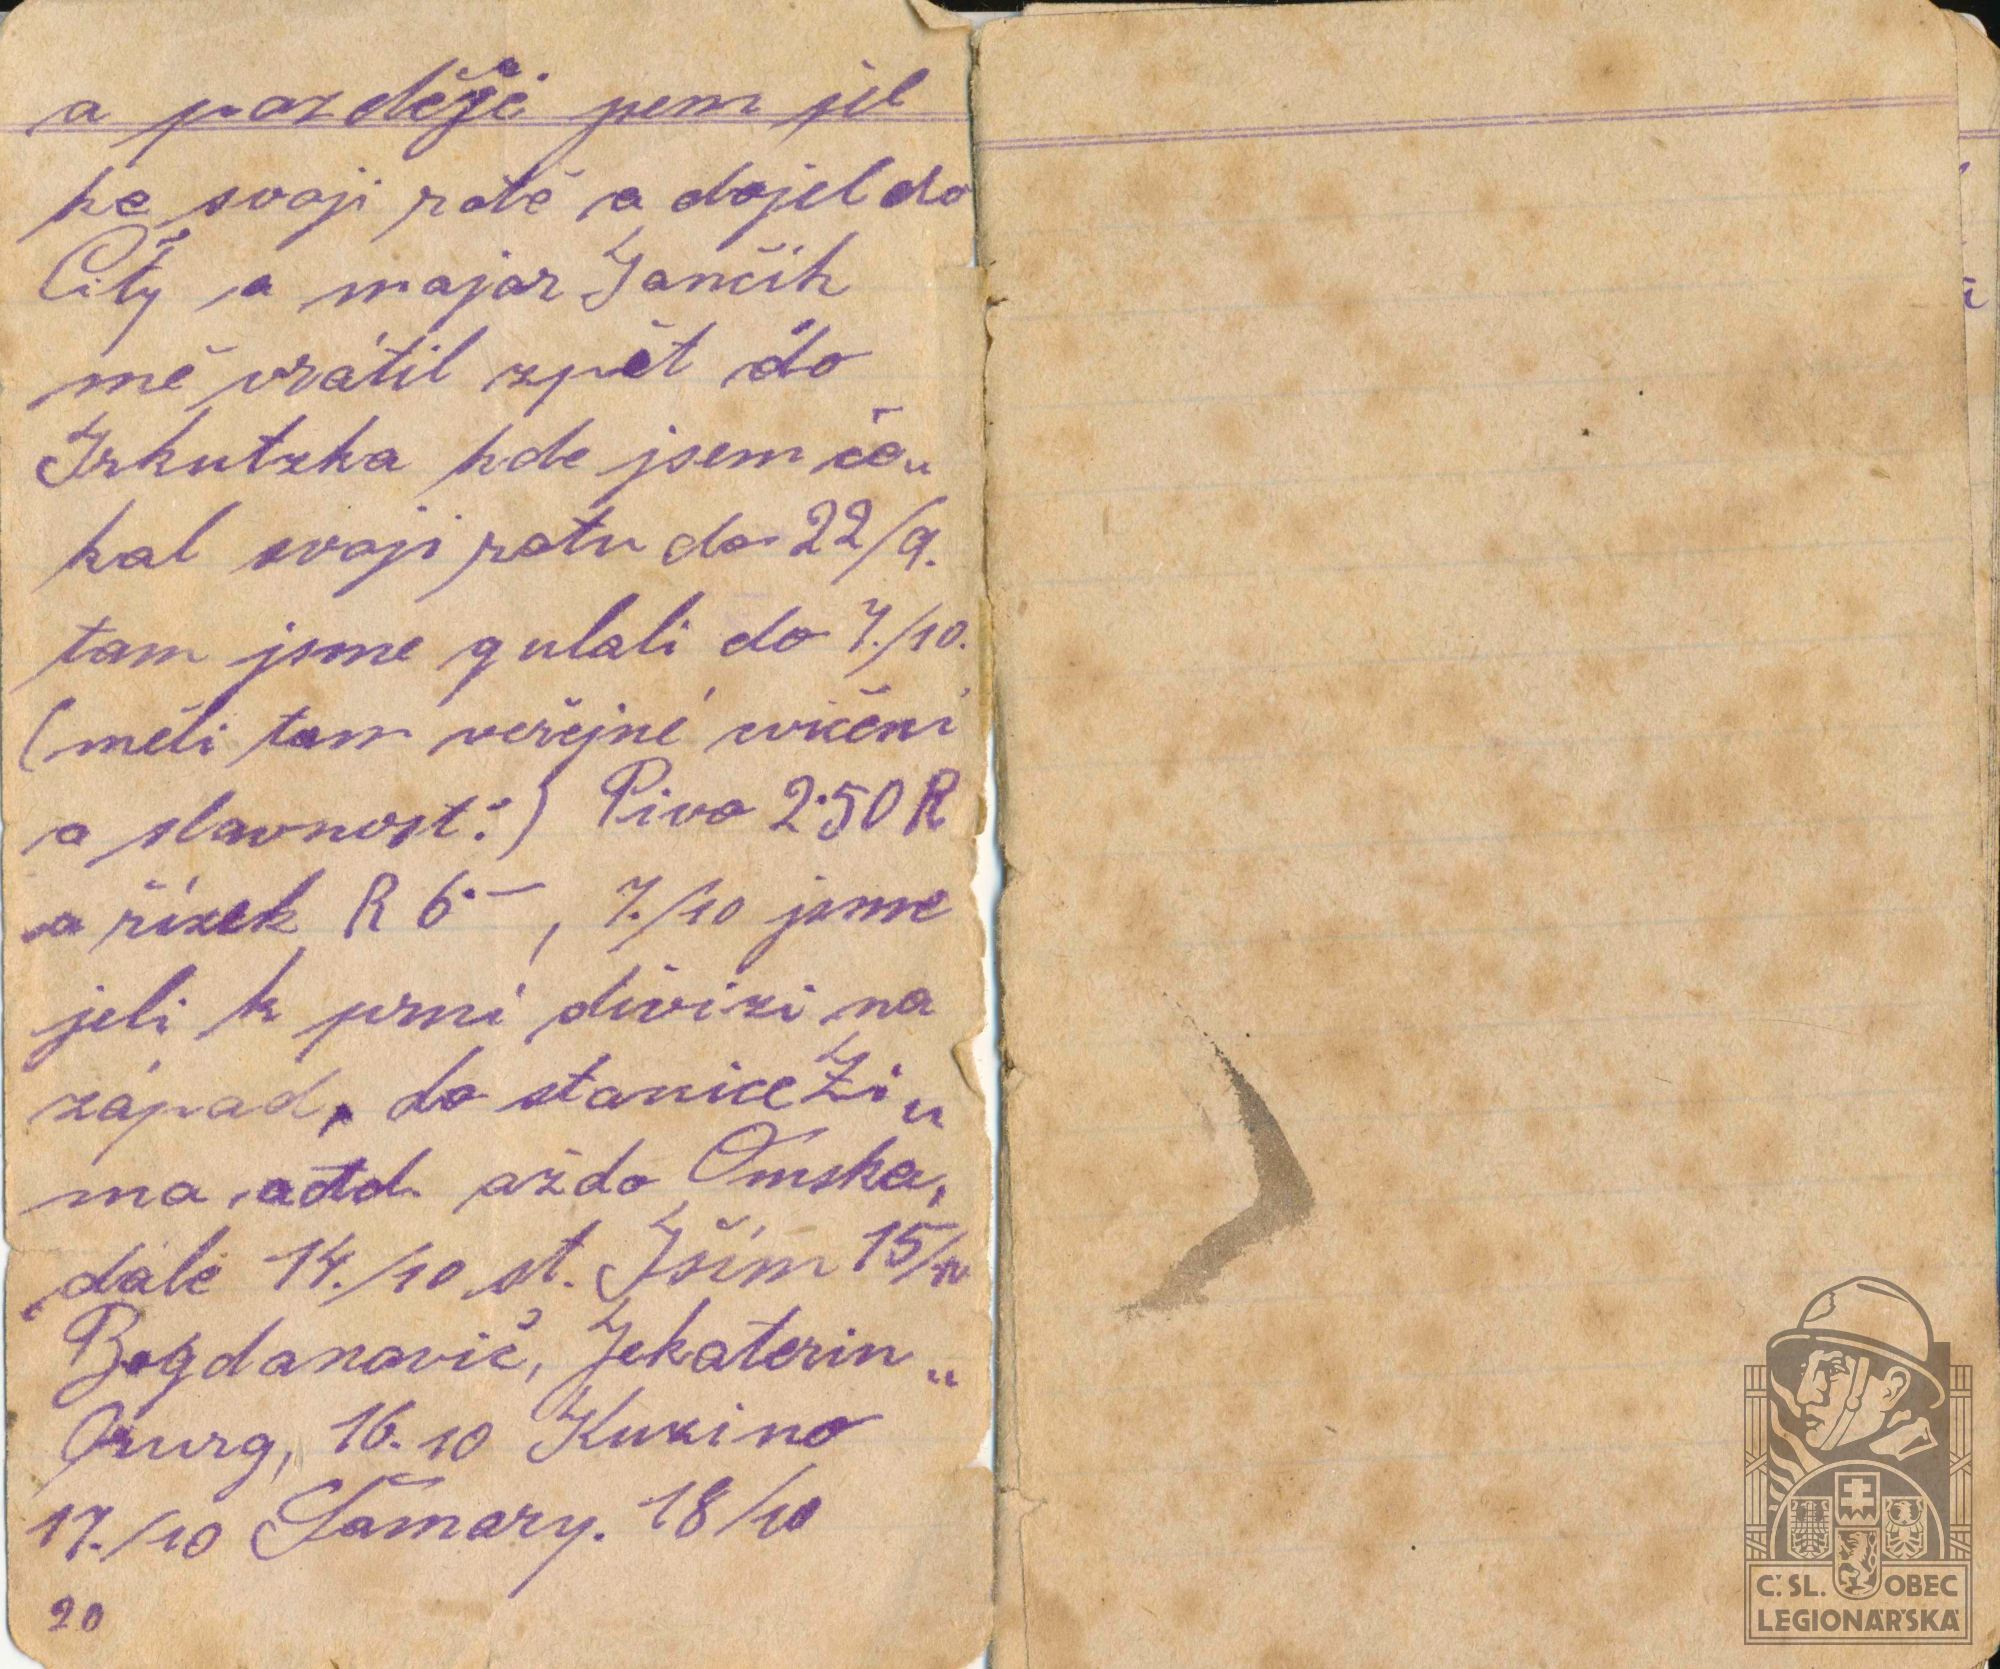 a pozděj jsem jel
ke svoji rotě a dojel do
Čity a major Jančík
mě vrátil zpět do
Irkutzka kde jsem če„
kal svoji rotu do 22/9.
tam jsme gulali do 7./10.
(měli tam veřejné cvičení
a slavnost:) Pivo 2·50 R
a řízek R 6·–, 7./10 jsme
jeli k prní divizi na
západ, do stanice Zi„
ma atd. až do Omska,
dále 14./10 st. Išim 15/10
Bogdanovič, Jekaterin„
burg, 16.10 Kuzino
17./10 Šamary. 18/10
20
Č. SL. OBEC
LEGIONÁŘSKÁ